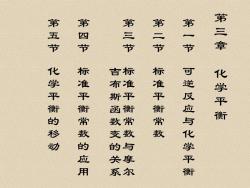 第三章 化学平衡
第一节 可逆反应与化学平衡
第二节 标准平衡常数
第三节 标准平衡常数与摩尔
吉布斯函数变的关系
第四节 标准平衡常数的应用
第五节 化学平衡的移动